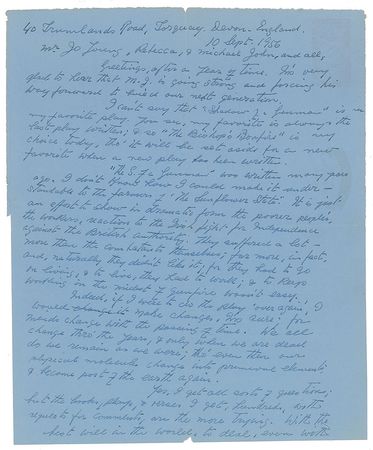 40 Trumlands Road, Torquay. Devon. England.
10 Sept. 1956
Mr. Jo Loring, Rebecca, & Michael John, and all,
Greetings, after a year of time. I'm very
glad to hear that M.J. is going strong and forcing his
way forward to build our next generation.
I can't say that "Shadow of a Gunman" is
my favorite play. You see, my favorite is always the
last play written; & so "The Bishop's Bonfire" is my
choice today, tho' it will be set aside for a new
favorite when a new play has been written.
"The S. of a Gunman" was written many years
ago. I don't know how I could make it under-
standable to the farmers of "the Sunflower State". It is just
an effort to show in dramatic form the poorer people,
the workers, reaction to the Irish fight for Independence
against the British authority. They suffered a lot —
more than the combatants themselves; far more, in fact,
and, naturally they didn't like it, for they had to go
on living, & to live, they had to work; & to keep
working in the midst of gunfire wasn't easy.
Indeed, if I were to do the play over again, I
would make changes, I'm sure; for
minds change with the passing of time. We all
change thro' the years, & only when we are dead
do we remain as we were; tho' even then our
physical molecules change into primeval elements
& become part of the earth again.
Yes, I get all sorts of questions;
but the books, plays, & verses I get, hundreds, with
requests for comments, are the more trying. With the
best will in the world, to deal, even with